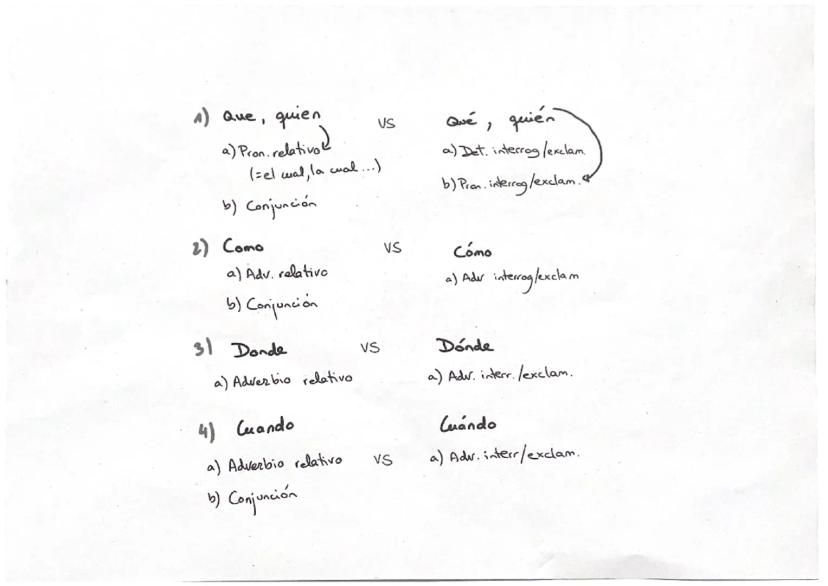 1) Que, quien vs Qué, quién
a) Pron. relativo a) Det. interrog/exclam.
(= el cual, la cual ...) b) Pron. interrog/exclam.
b) Conjunción
2) Como vs Cómo
a) Adv. relativo a) Adv interrog/exclam
b) Conjunción
3) Donde vs Dónde
a) Adverbio relativo a) Adv. interr./exclam.
4) Cuando Cuándo
a) Adverbio relativo vs a) Adv. interr/exclam.
b) Conjunción